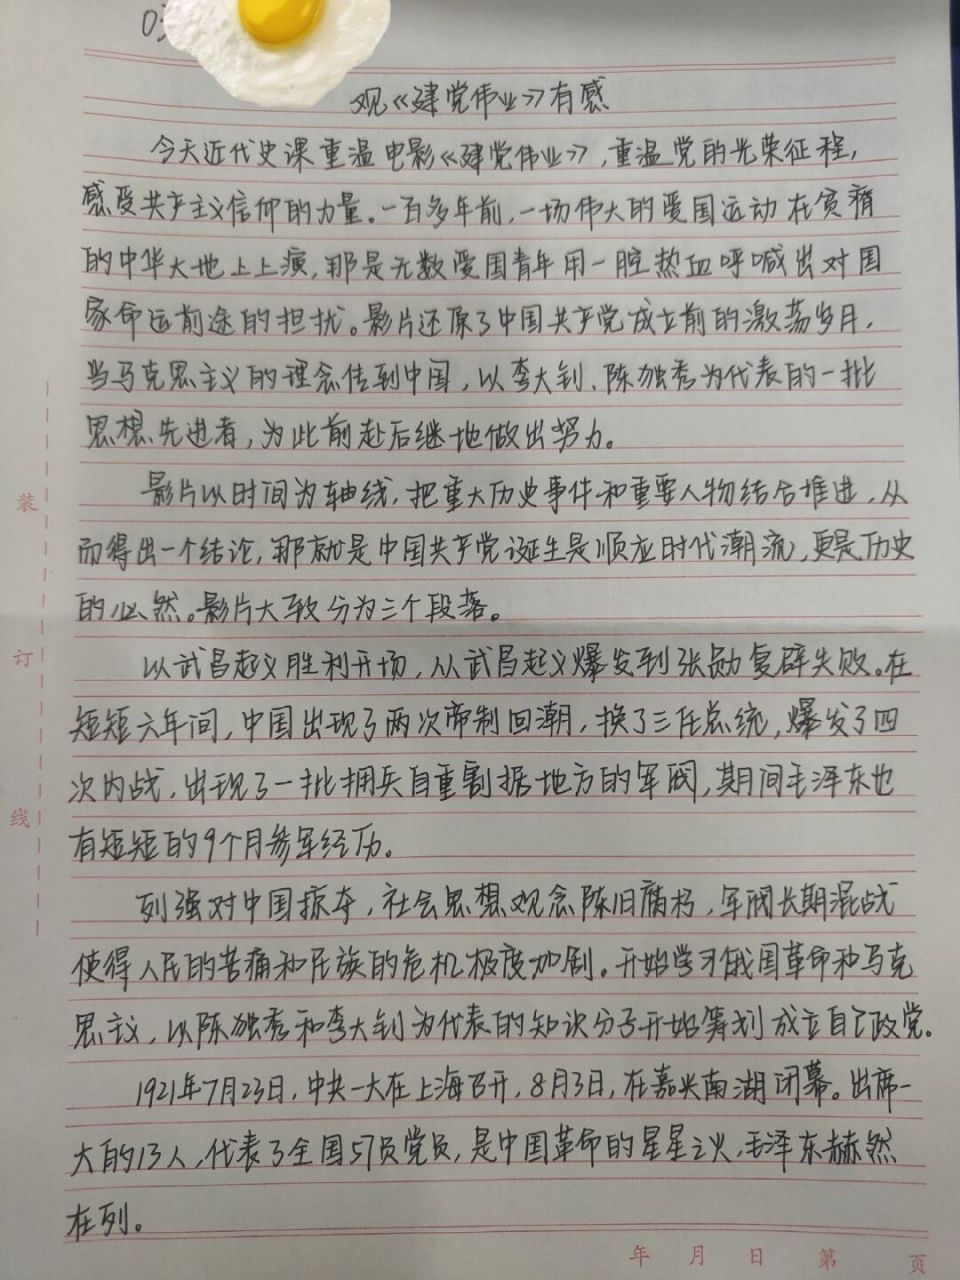 观《建党伟业》有感
今天近代史课重温电影《建党伟业》,重温党的光荣征程,
感受共产主义信仰的力量。一百多年前,一场伟大的爱国运动在贫瘠
的中华大地上上演,那是无数爱国青年用一腔热血呼喊出对国
家命运前途的担扰。影片还原了中国共产党成立前的激荡岁月,
当马克思主义的理念传到中国,以李大钊、陈独秀为代表的一批
思想先进者,为此前赴后继地做出努力。
影片以时间为轴线,把重大历史事件和重要人物结合推进,从
而得出一个结论,那就是中国共产党诞生是顺应时代潮流,更是历史
的必然。影片大致分为三个段落。
以武昌起义胜利开场,从武昌起义爆发到张勋复辟失败。在
短短六年间,中国出现了两次帝制回潮,换了三任总统,爆发了四
次内战,出现了一批拥兵自重割据地方的军阀,期间毛泽东也
有短短的9个月参军经历。
列强对中国掠夺,社会思想观念陈旧腐朽,军阀长期混战
使得人民的苦痛和民族的危机极度加剧。开始学习俄国革命和马克
思主义,以陈独秀和李大钊为代表的知识分子开始筹划成立自己政党。
1921年7月23日,中共一大在上海召开,8月3日,在嘉兴南湖闭幕。出席一
大的13人,代表了全国57员党员,是中国革命的星星之火,毛泽东赫然
在列。
装
订
线
年 月 日 第 页